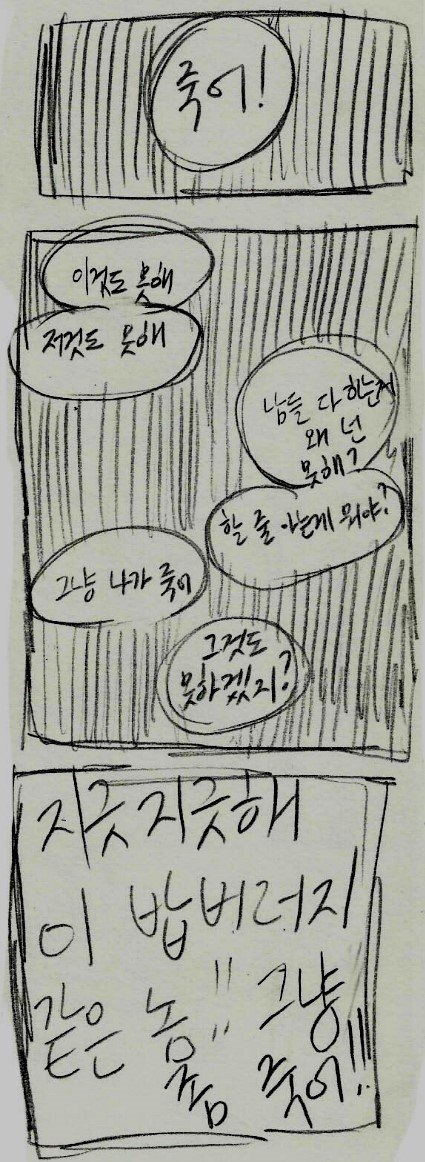 죽어!
이것도 못해
저것도 못해
남들 다 하는게
왜 넌
못해?
할 줄 아는게 뭐야?
그냥 나가 죽어
그것도
못하겠지?
지긋지긋해
이 밥버러지
같은 놈!! 그냥
좀 죽어!!